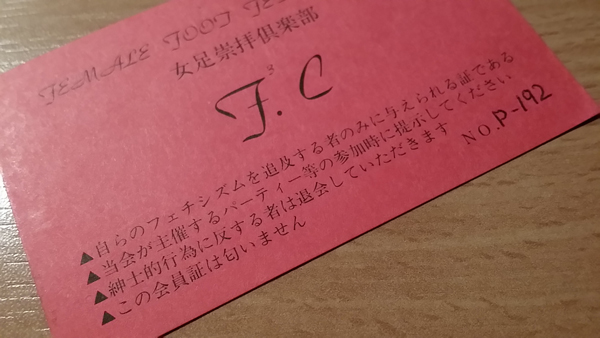 FEMALE FOOT
女足崇拝倶楽部
F³.C
▲自らのフェチシズムを追及する者のみに与えられる証である
▲当会が主催するパーティー等の参加時に提示してください
▲紳士的行為に反する者は退会していただきます
▲この会員証は匂いません
NO.P-192